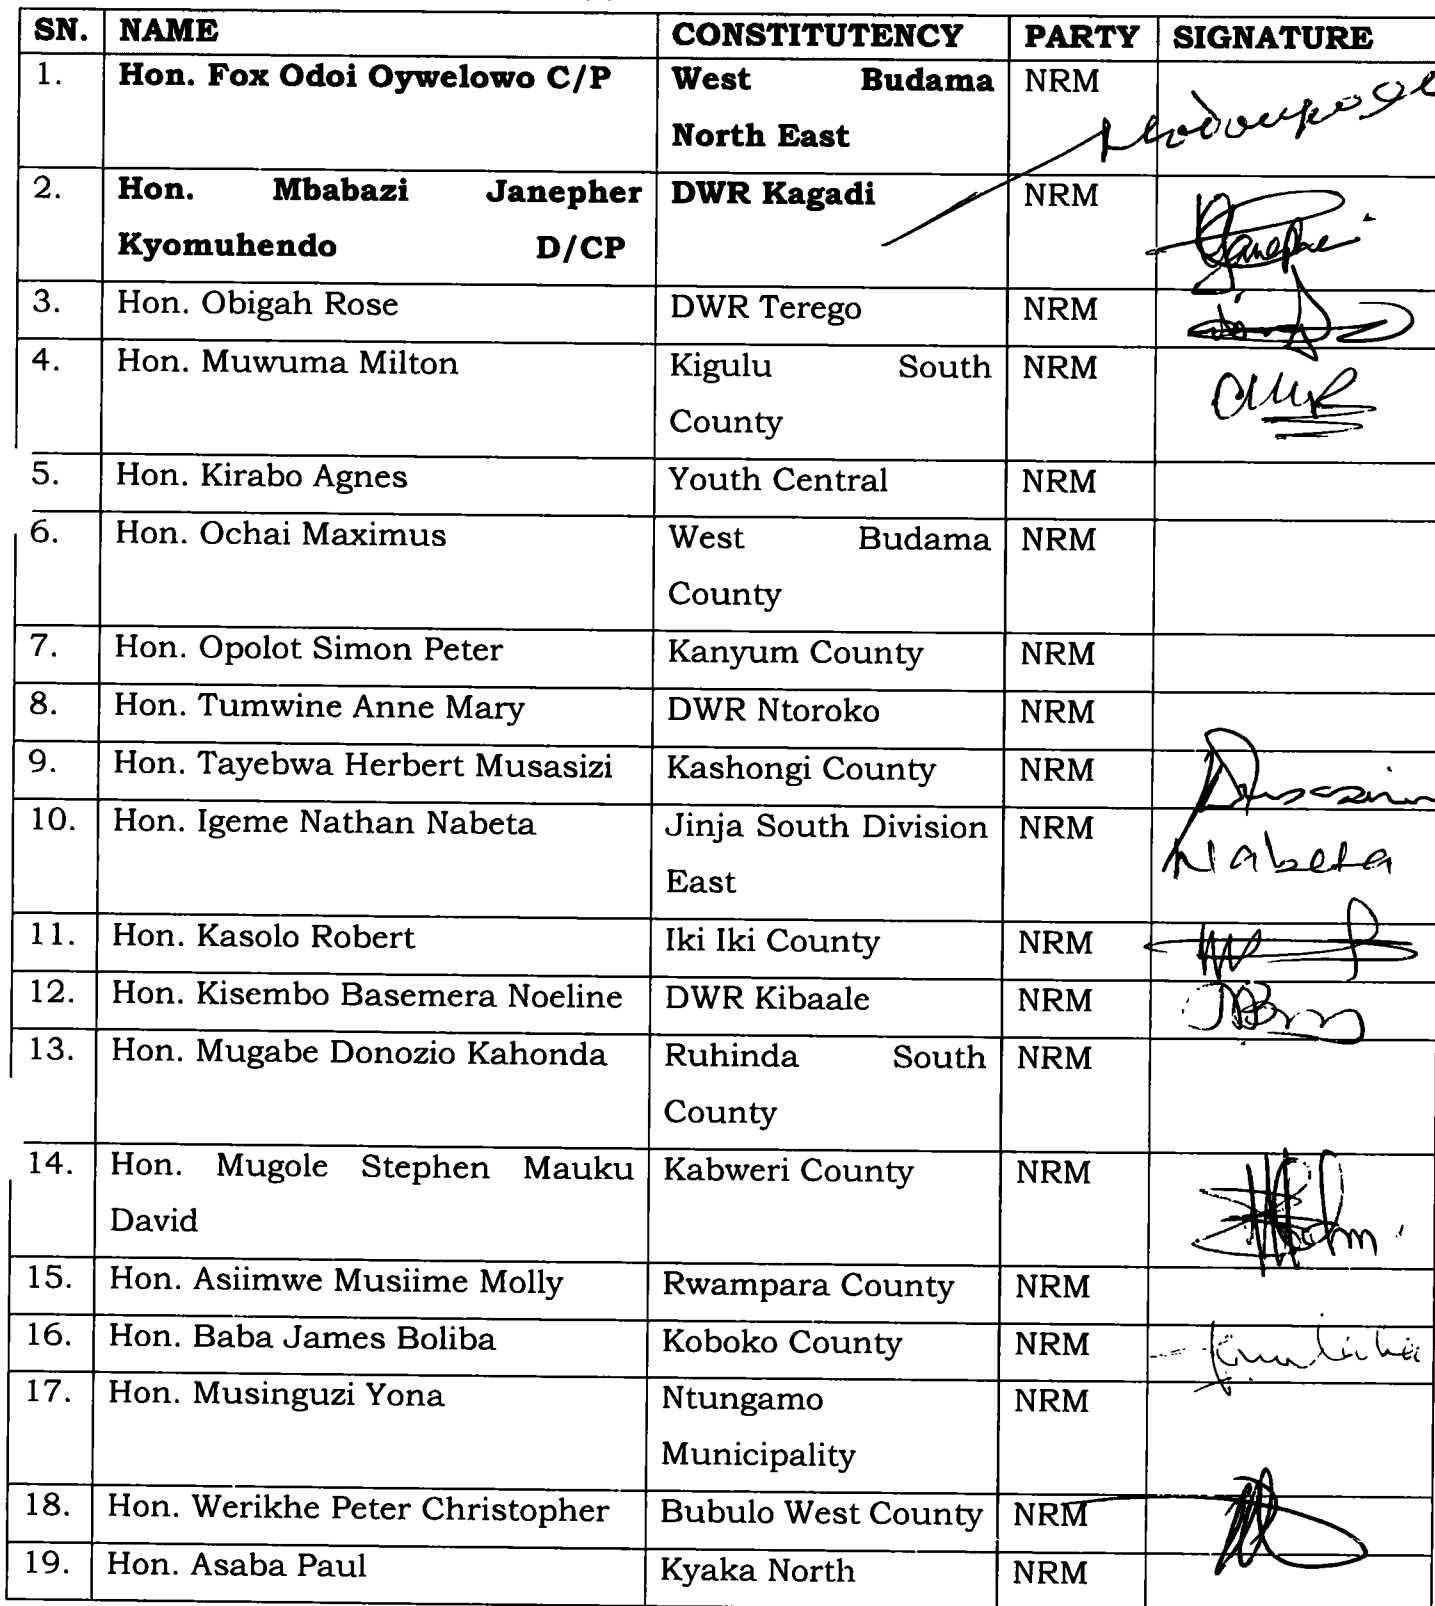 SN. NAME CONSTITUTENCY PARTY SIGNATURE
1. Hon. Fox Odoi Oywelowo C/P West Budama NRM
North East
2. Hon. Mbabazi Janepher DWR Kagadi NRM
Kyomuhendo D/CP
Janepher
3. Hon. Obigah Rose DWR Terego NRM
4. Hon. Muwuma Milton Kigulu South NRM
County
5. Hon. Kirabo Agnes Youth Central NRM
6. Hon. Ochai Maximus West Budama NRM
County
7. Hon. Opolot Simon Peter Kanyum County NRM
8. Hon. Tumwine Anne Mary DWR Ntoroko NRM
9. Hon. Tayebwa Herbert Musasizi Kashongi County NRM
10. Hon. Igeme Nathan Nabeta Jinja South Division NRM Nabeta
East
11. Hon. Kasolo Robert Iki Iki County NRM
12. Hon. Kisembo Basemera Noeline DWR Kibaale NRM
13. Hon. Mugabe Donozio Kahonda Ruhinda South NRM
County
14. Hon. Mugole Stephen Mauku Kabweri County NRM
David
15. Hon. Asiimwe Musiime Molly Rwampara County NRM
16. Hon. Baba James Boliba Koboko County NRM
17. Hon. Musinguzi Yona Ntungamo NRM
Municipality
18. Hon. Werikhe Peter Christopher Bubulo West County NRM
19. Hon. Asaba Paul Kyaka North NRM